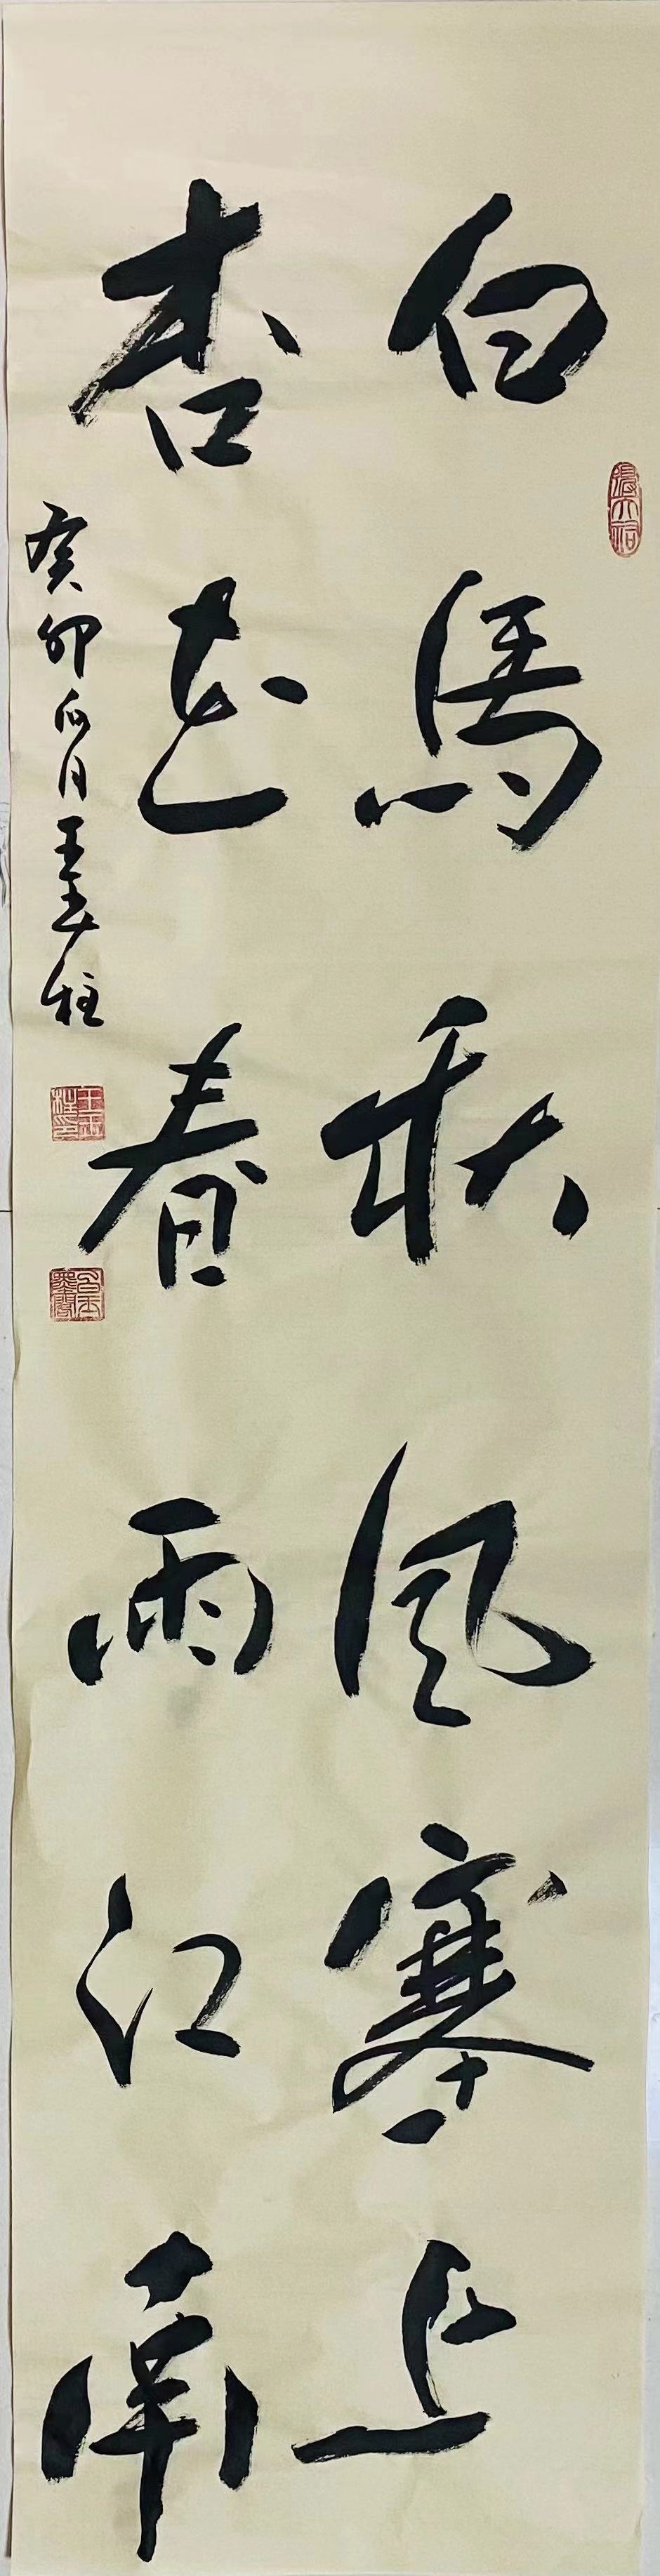 白馬秋风塞上
杏花春雨江南
癸卯瓜月王玉柱